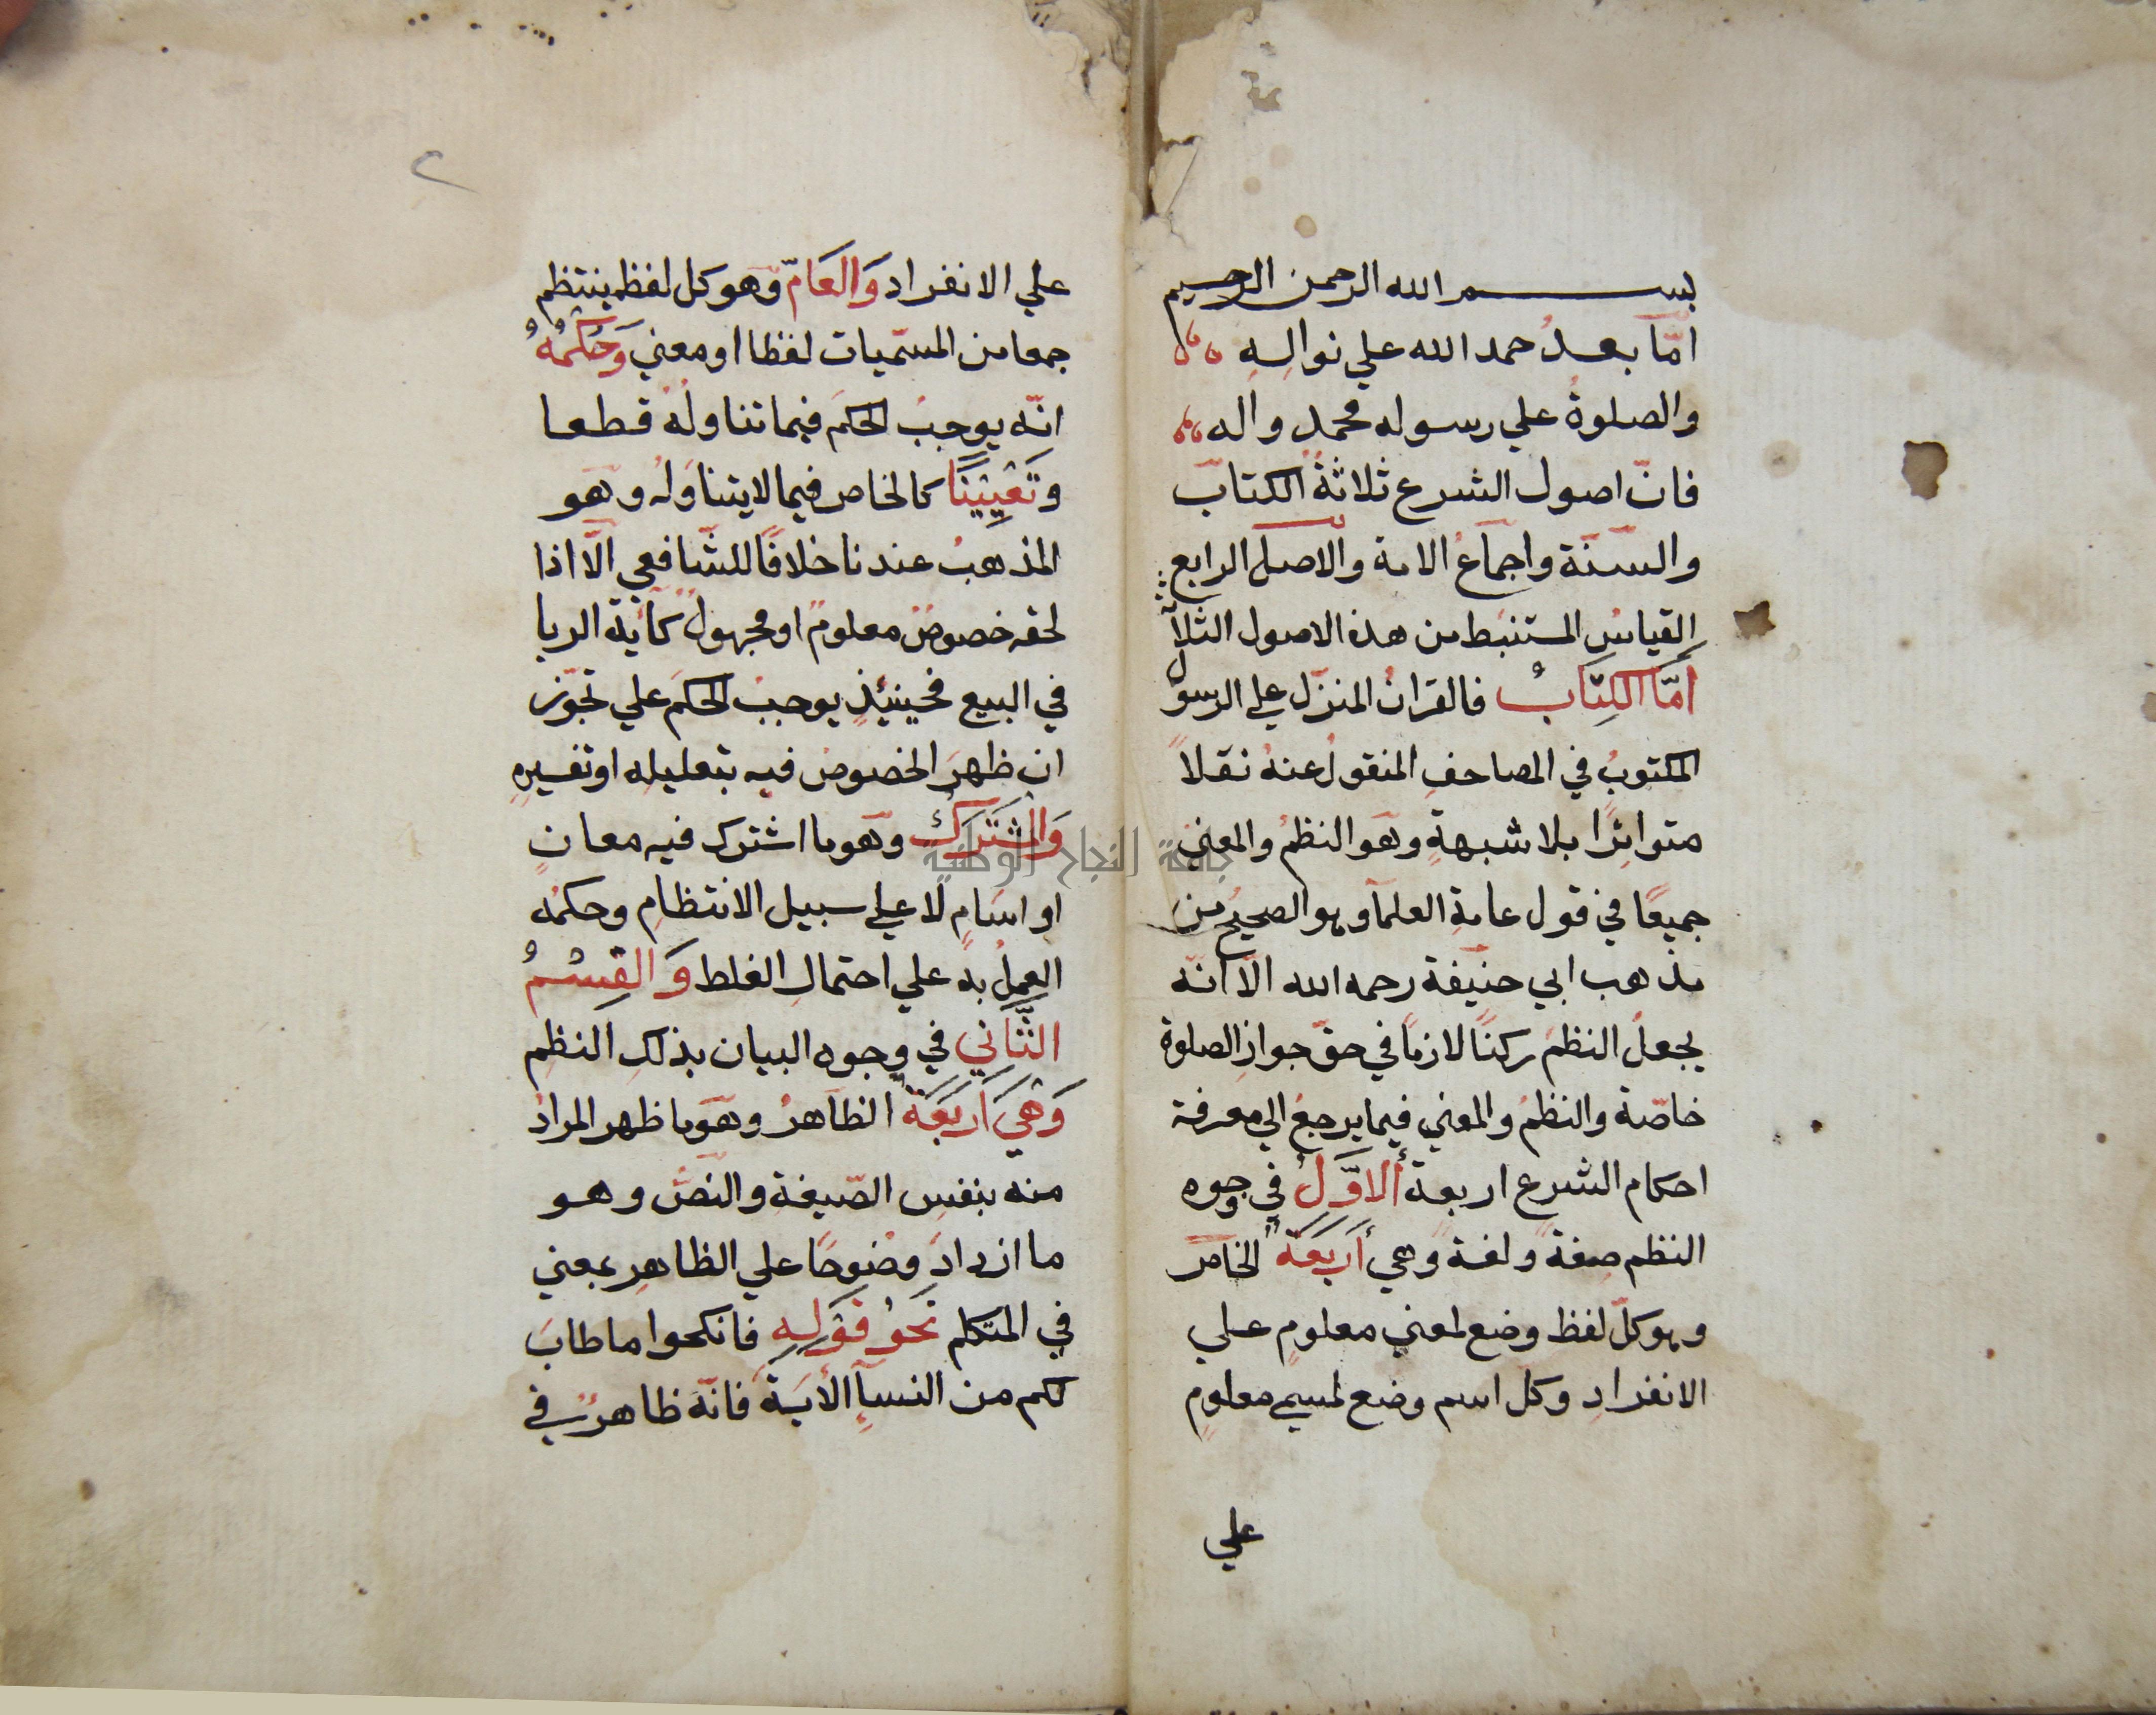 بسم الله الرحمن الرحيم
امّا بعدُ حمد الله علي نوالِهِ
والصلوةُ علي رسوله محمدٍ واله
فانّ اصول الشرع ثلاثةٌ الكتابُ
والسنّة واجماعُ الامة والاصل الرابع
القياسُ المستنبط من هذه الاصول الثلاث
أَمَّا الكِتَابُ فالقرانُ المنزّل علي الرسول
المكتوبُ في المصاحفِ المنقولُ عنهُ نقلاً
متواترًا بلا شبهةٍ وهو النظمُ والمعني
جميعًا في قول عامةِ العلمآ وهو الصحيحُ من
مذهب ابي حنيفة رحمه الله الّا انّه
يجعل النظمَ ركنًا لازمًا في حقّ جوازِ الصلوة
خاصّة والنظمُ والمعني فيما يرجعُ الي معرفة
احكام الشرع اربعةٌ الاوَّلُ في وجوه
النظم صيغةً ولغةً وهي أَربَعَةٌ الخاصّ
وهو كلّ لفظ وضع لمعني معلومٍ علي
الانفرادِ وكل اسم وضع لمسمي معلومٍ
علي
٢
علي الانفراد وَالعَامّ وهو كل لفظ ينتظم
جمعا من المسمّيات لفظا او معني وَحُكمُهُ
انّه يوجبُ الحكمَ فيما تناولَهُ قطعا
وتَعْيِينًا كالخاص فيما لا يتناوله وهو
المذهبُ عندنا خلافًا للشّافعي الّا اذا
لحقه خصوصٌ معلومٌ او مجهولٌ كآية الربا
في البيع فحينئذٍ يوجبُ الحكمَ علي تجوّز
ان ظهرَ الخصوص فيه بتعليلِه او تفسيرِهِ
وَالمشتَرَكُ وهو ما اشترك فيه معانٍ
او اسَامٍ لا علي سبيل الانتظامِ وحكمُه
العملُ به علي احتمالِ الغلط وَالقِسْمُ
الثَّانِي في وجوه البيان بذلكِ النظمِ
وَهِيَ اَربَعَةٌ الظاهرُ وهو ما ظهر المرادُ
منه بنفسِ الصّيغةِ والنصّ وهو
ما ازدادَ وضوحًا علي الظاهرِ بمعني
في المتكلم نَحوُ قَولِهِ فانكحوا ما طابَ
لكم من النسآءِ الأية فانّه ظاهرٌ في
جامعة النجاح الوطنية